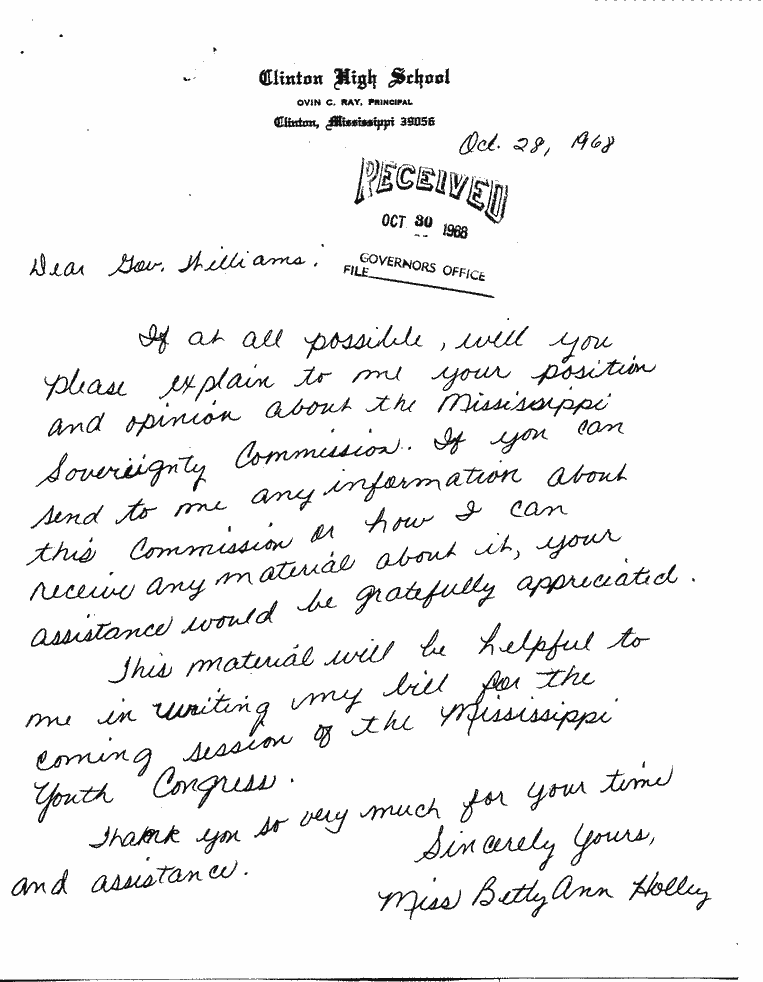 Clinton High School
OVIN C. RAY, PRINCIPAL
Clinton, Mississippi 39056
Oct. 28, 1968
RECEIVED
OCT 30 1968
GOVERNORS OFFICE
FILE
Dear Gov. Williams:
If at all possible, will you
please explain to me your position
and opinion about the Mississippi
Sovereignty Commission. If you can
send to me any information about
this Commission or how I can
receive any material about it, your
assistance would be gratefully appreciated.
This material will be helpful to
me in writing my bill for the
coming session of the Mississippi
Youth Congress.
Thank you so very much for your time
and assistance.
Sincerely Yours,
Miss Betty Ann Holley